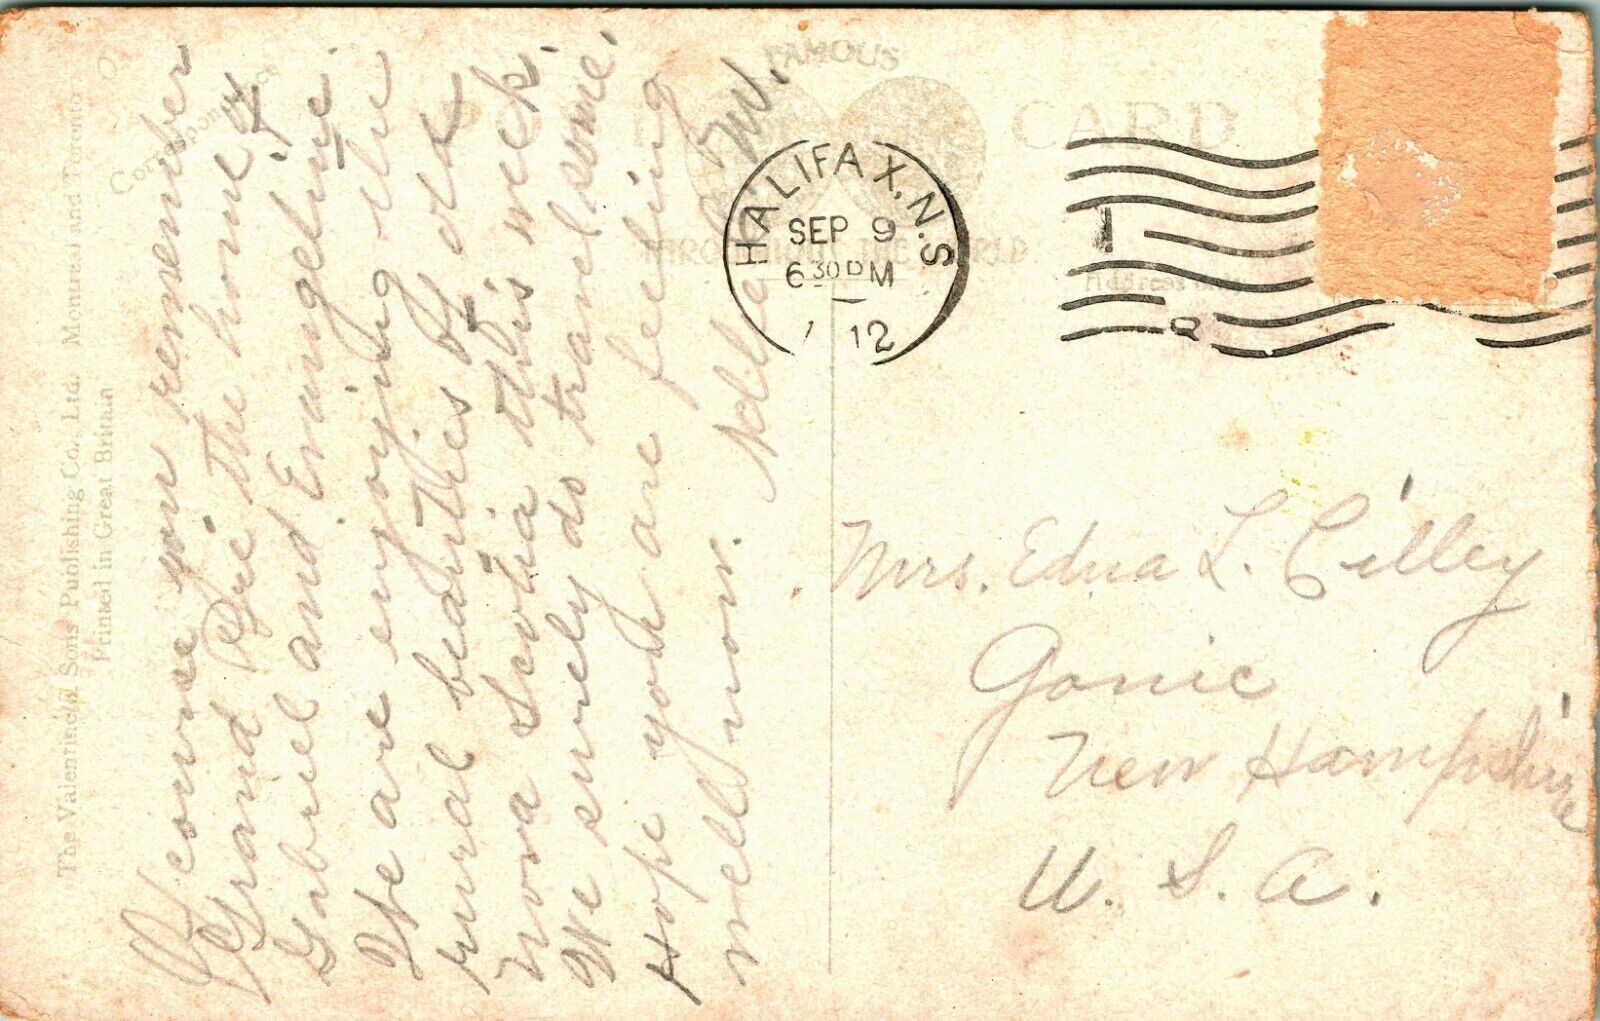 The Valentine & Sons Publishing Co., Ltd. Montreal and Toronto
Printed in Great Britain
Correspondence
Of course you remember
Grand Pré the home of
Gabriel and Evangeline.
We are enjoying the
rural beauties of old
Nova Scotia this week.
We surely do travel some.
Hope you are feeling
well now.
FAMOUS
CARD
THROUGHOUT THE WORLD
Address only
HALIFAX, N.S.
SEP 9
6 30 PM
12
Mrs. Edna L. Cilley
Gonic
New Hampshire
U. S. A.